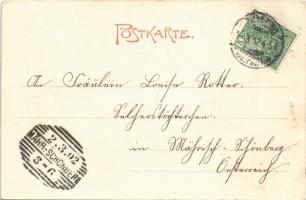 POSTKARTE.
An Fräulein Louise Rotter.
Selcherstöchterchen.
in Mährisch-Schönberg
Oesterreich.
2.3.02
MÄHR.-SCHÖNBERG
3-6